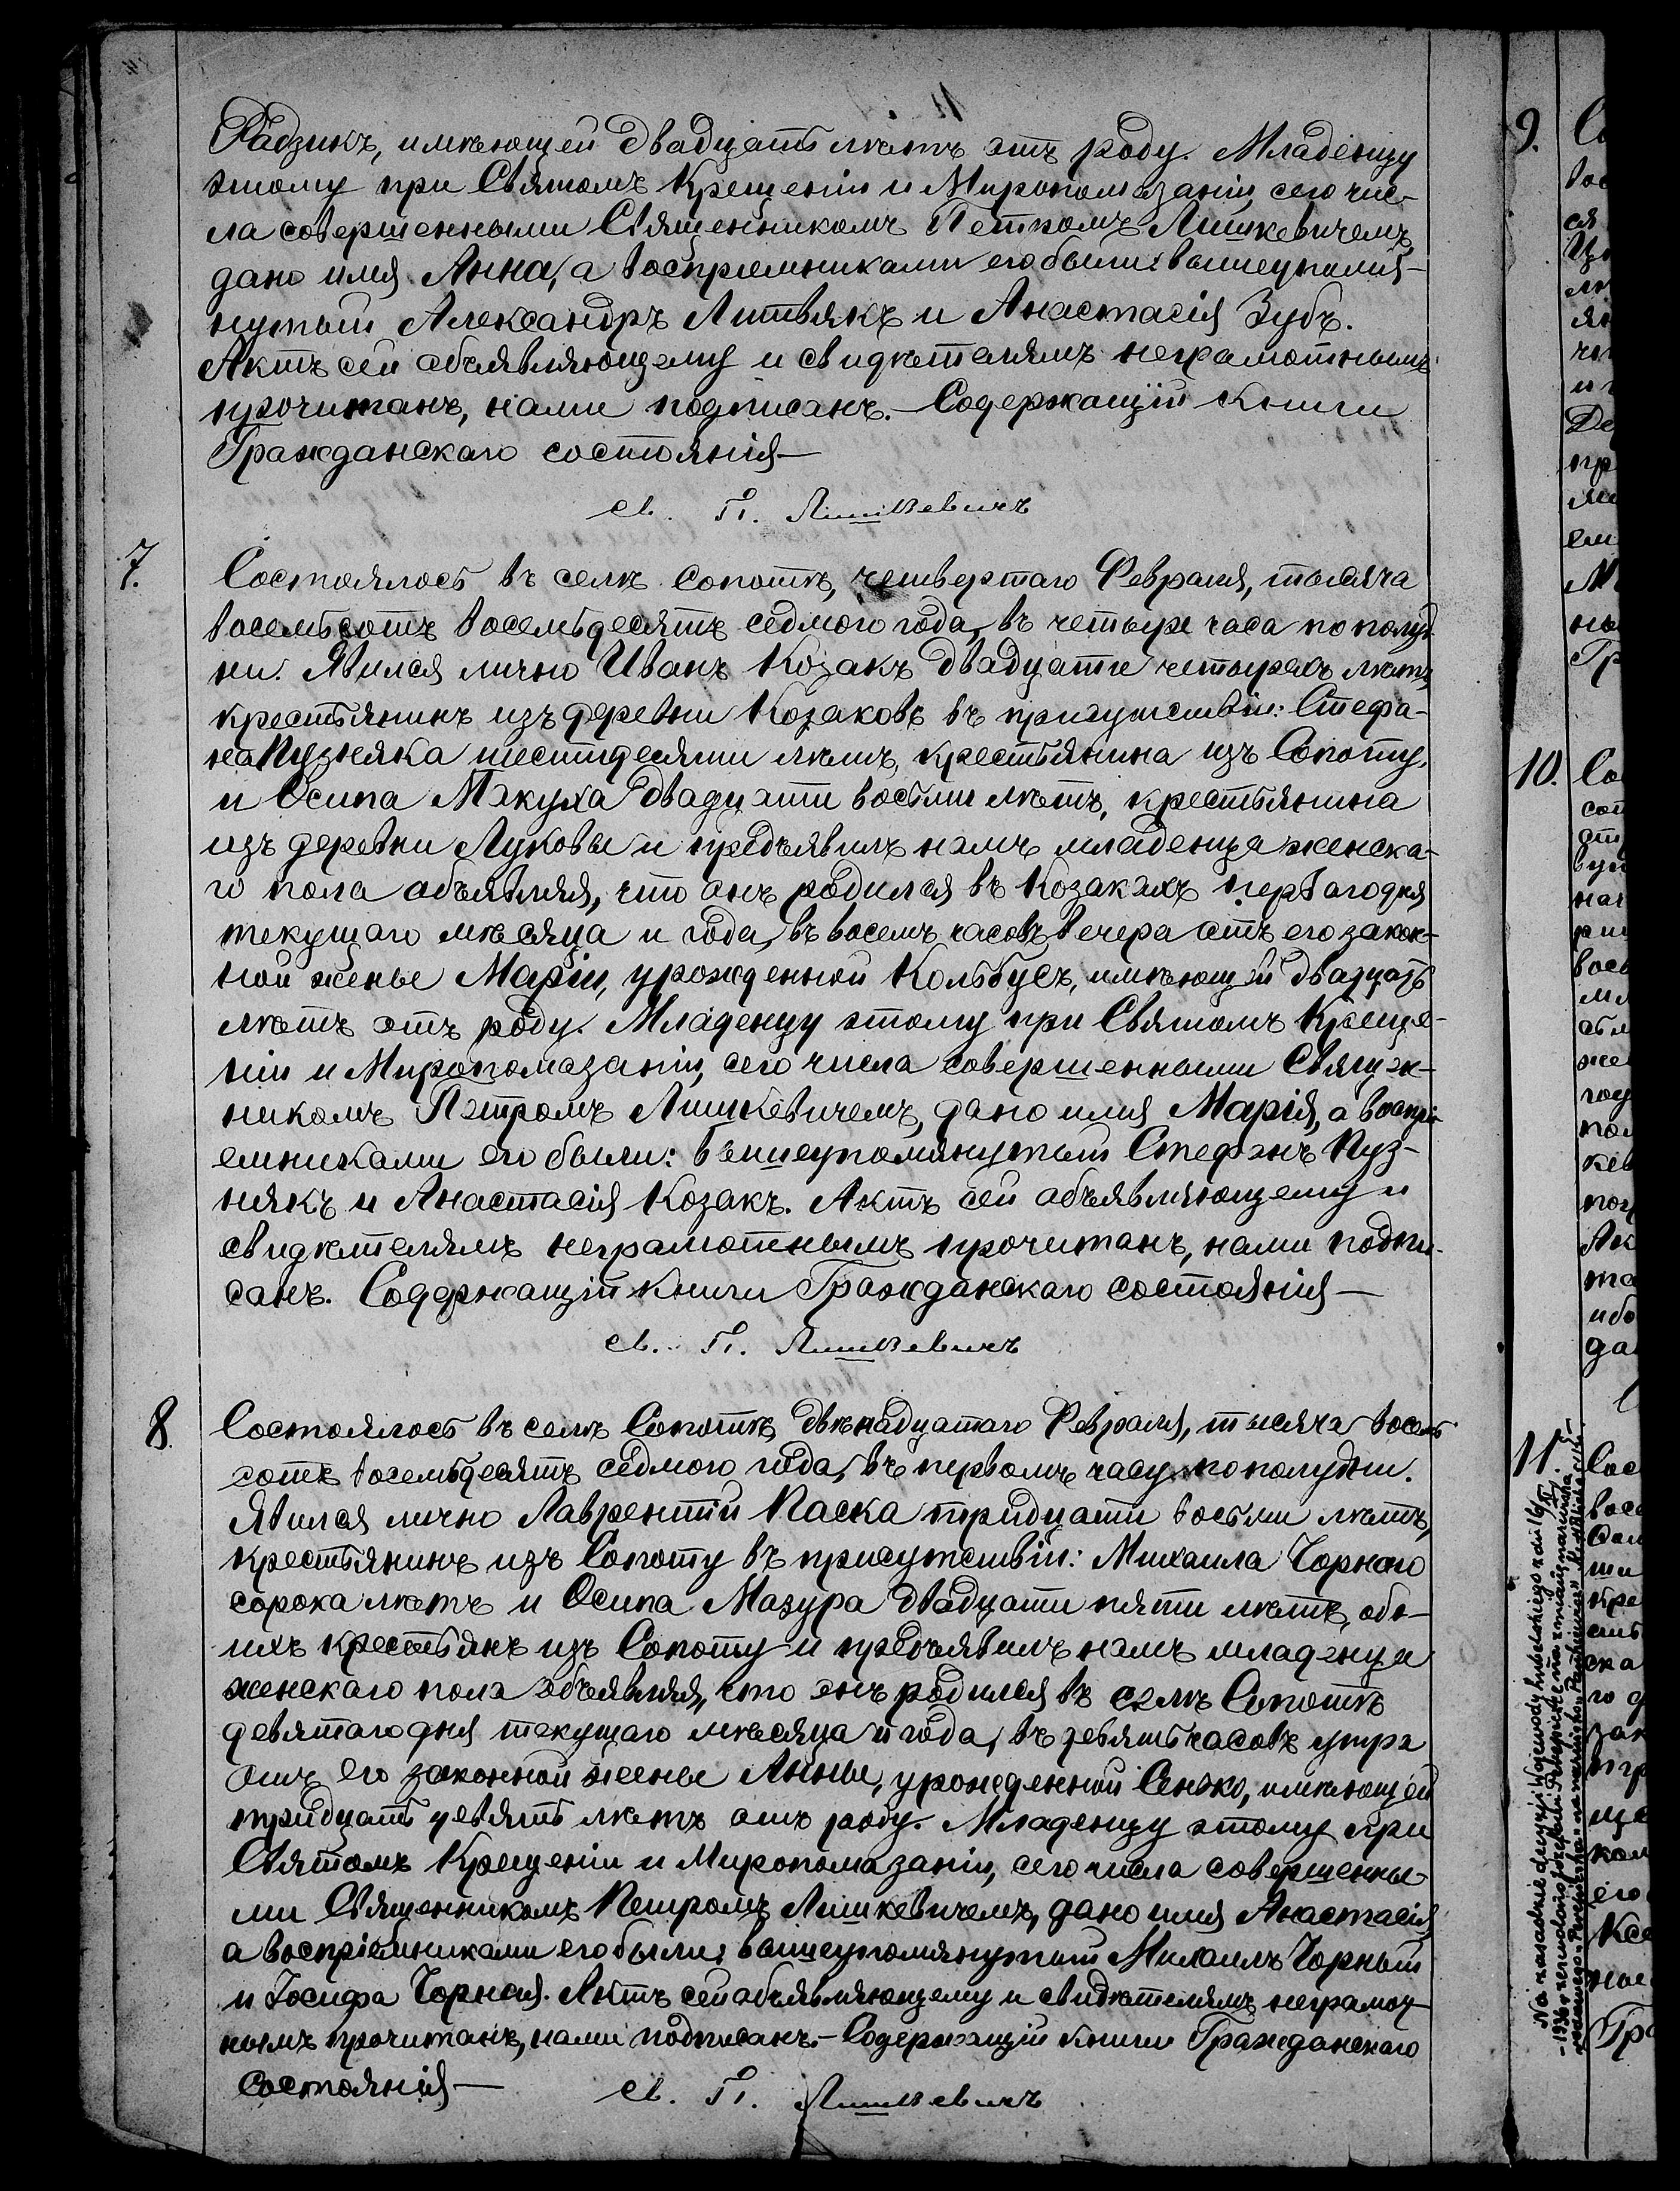 Радзикъ, имѣющей двадцать лѣтъ отъ роду. Младенцу
этому при Святомъ Крещеніи и Миропомазаніи, сего чис-
ла совершенными Священникомъ Петромъ Лишкевичемъ,
дано имя Анна, а воспріемниками его были: вышеупомя-
нутый Александръ Литвякъ и Анастасія Зубъ.
Актъ сей объявляющему и свидѣтелямъ неграмотнымъ
прочитанъ, нами подписанъ.— Содержащій книги
Гражданскаго состоянія—
св. П. Лишкевичъ
7.
Состоялось въ селѣ Сопотѣ, четвертаго Февраля, тысяча
восемьсотъ восемьдесятъ седмого года, въ четыре часа по полуд-
ни. Явился лично Иванъ Козакъ двадцати четырехъ лѣтъ,
крестьянинъ изъ деревни Козаковъ въ присутствіи: Стефа-
на Пузняка шестидесяти лѣтъ, крестьянина изъ Сопоту,
и Осипа Макуха двадцати восьми лѣтъ, крестьянина
изъ деревни Луковы и предъявилъ намъ младенца женска-
го пола объявляя, что онъ родился въ Козакахъ перваго дня
текущаго мѣсяца и года, въ восемь часовъ вечера отъ его закон-
ной женые Маріи, урожденной Кольбусъ, имѣющей двадцать
лѣтъ отъ роду. Младенцу этому при Святомъ Креще-
ніи и Миропомазаніи, сего числа совершенными Священ-
никомъ Петромъ Лишкевичемъ, дано имя Марія, а воспрі-
емниками его были: вышеупомянутый Стефанъ Пуз-
някъ и Анастасія Козакъ. Актъ сей объявляющему и
свидѣтелямъ неграмотнымъ прочитанъ, нами подпи-
санъ. Содержащій книги Гражданскаго состоянія—
св. П. Лишкевичъ
8.
Состоялось въ селѣ Сопотѣ, двѣнадцатаго Февраля, тысяча восемь
сотъ восемьдесятъ седмого года, въ первомъ часу по полудни.
Явился лично Лаврентій Паска тридцати восьми лѣтъ,
крестьянинъ изъ Сопоту въ присутствіи: Михаила Чорнаго
сорока лѣтъ и Осипа Мазура двадцати пяти лѣтъ, обо-
ихъ крестьянъ изъ Сопоту и предъявилъ намъ младенца
женскаго пола объявляя, что онъ родился въ селѣ Сопотѣ
девятаго дня текущаго мѣсяца и года, въ девять часовъ утра
отъ его законной женые Анные, урожденной Сенько, имѣющей
тридцать девять лѣтъ отъ роду. Младенцу этому при
Святомъ Крещеніи и Миропомазаніи, сего числа совершенны-
ми Священникомъ Петромъ Лишкевичемъ, дано имя Анастасія,
а воспріемниками его были: вышеупомянутый Михаилъ Чорный
и Іосифа Чорная. Актъ сей объявляющему и свидѣтелямъ неграмот-
нымъ прочитанъ, нами подписанъ.— Содержащій книги Гражданскаго
состоянія—
св. П. Лишкевичъ
9.
10.
11.